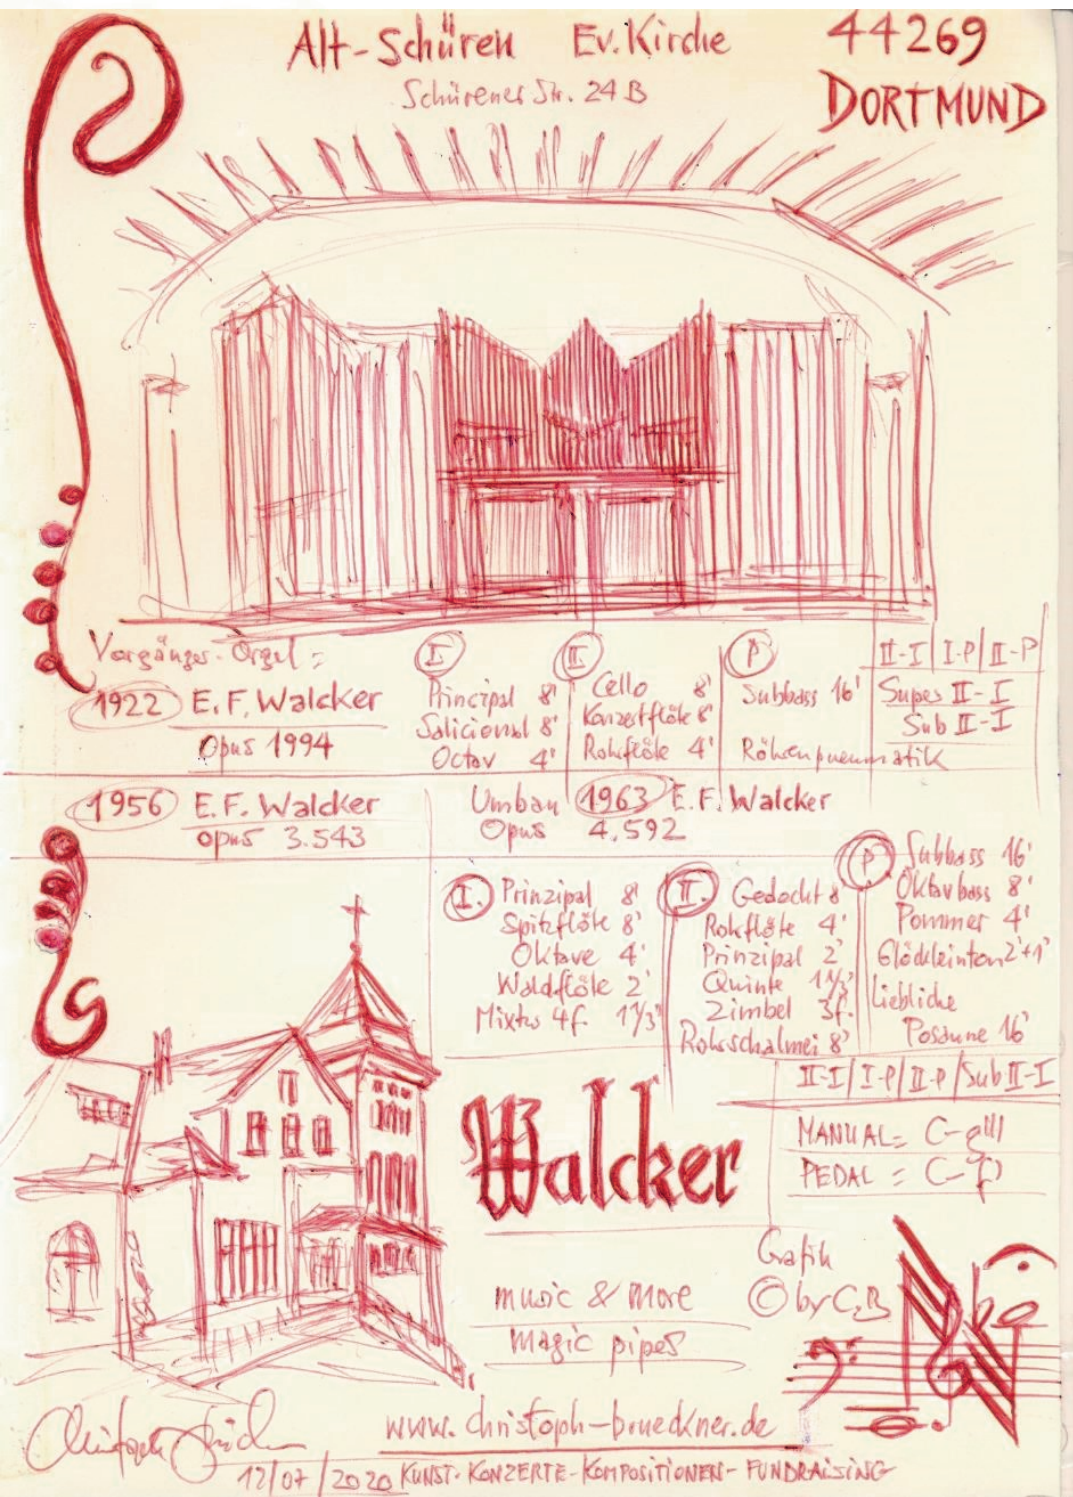 Alt-Schüren Ev. Kirche
Schürener Str. 24 B
44269
DORTMUND
Vorgänger-Orgel =
1922 E. F. Walcker
Opus 1994
I
Principal 8'
Salicional 8'
Octav 4'
II
Cello 8'
Konzertflöte 8'
Rohrflöte 4'
P
Subbass 16'
Röhrenpneumatik
II-I | I-P | II-P
Super II-I
Sub II-I
1956 E. F. Walcker
opus 3.543
Umbau 1963 E. F. Walcker
Opus 4.592
I.
Prinzipal 8'
Spitzflöte 8'
Oktave 4'
Waldflöte 2'
Mixtur 4f. 1 1/3'
II.
Gedackt 8'
Rohrflöte 4'
Prinzipal 2'
Quinte 1 1/3'
Zimbel 3f.
Rohrschalmei 8'
P
Subbass 16'
Oktavbass 8'
Pommer 4'
Glöckleinton 2'+1'
Liebliche
Posaune 16'
II-I / I-P / II-P / Sub II-I
MANUAL = C-g'''
PEDAL = C-f'
Walcker
Grafik
© by C.B.
music & more
magic pipes
www.christoph-brueckner.de
12/07/2020 KUNST-KONZERTE-KOMPOSITIONEN-FUNDRAISING